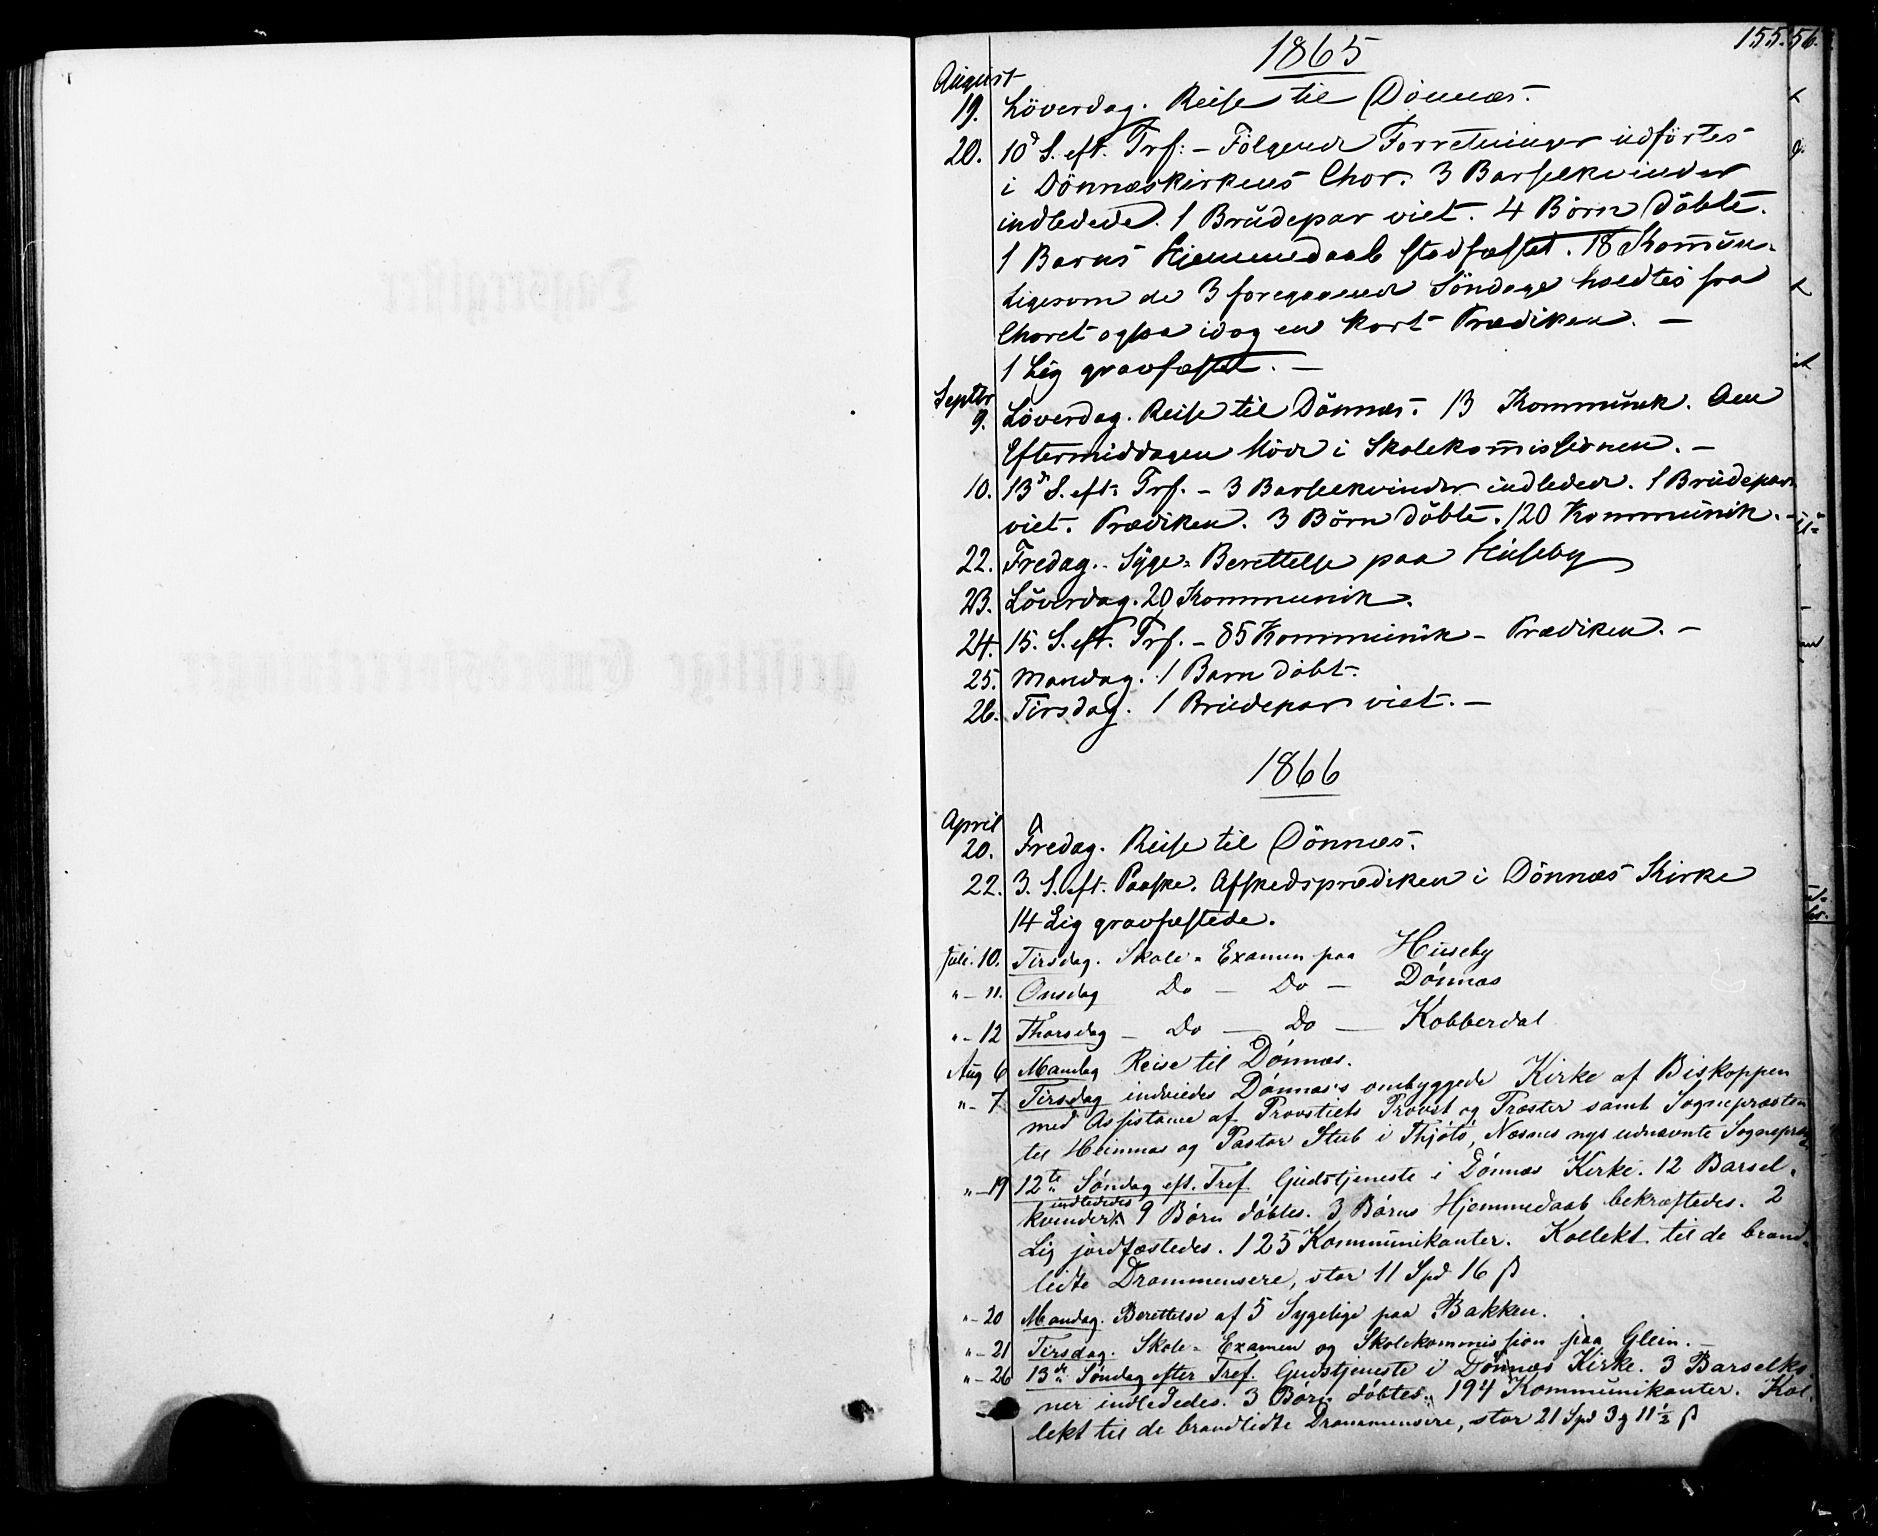 155.56.
1865
August
19. Löverdag. Reise til Dönnæs.
20. 10d S. eft. Trf: - Fölgende Forretninger udförtes
i Dönnæskirkens Chor. 3 Barselkvinder
indledede. 1 Brudepar viet. 4 Börn döbte.
1 Barns Hjemmedaab stadfæstet. 18 Kom̅un.
Ligesom de 3 foregaaende Söndage holdtes fra
Choret ogsaa idag en kort Prædiken. -
1 Lig gravfæstet. -
Septbr
9. Löverdag. Reise til Dönnæs. 13 Kommunik. Om
Eftermiddagen Möde i Skolekom̅issionen. -
10. 13d S. eft. Trf. - 3 Barselkvinder indledede. 1 Brudepar
viet. Prædiken. 3 Börn döbte. 120 Kommunik. -
22. Fredag. - Syge-Berettelse paa Huseby
23. Löverdag. 20 Kommunik.
24. 15. S. eft. Trf. - 85 Kommunik - Prædiken. -
25. Mandag. 1 Barn döbt.
26. Tirsdag. 1 Brudepar viet. -
1866
April
20. Fredag. Reise til Dönnæs.
22. 3. S. eft. Paaske. Afskedsprædiken i Dönnæs Kirke
14 Lig gravfæstede.
Juli. 10. Tirsdag. Skole-Examen paa Huseby
" - 11. Onsdag Do - Do - Dónnæs
" - 12 Thorsdag - Do - Do - Kobberdal
Aug 6 Mandag Reise til Dónnæs.
" - 7 Tirsdag indviedes Dónnæs's ombyggede Kirke af Biskoppen
med Assistance af Provstiets Provst og Præster samt Sognepræsten
til Hemnæs og Pastor Stub i Thjótó, Næsnes nys udnævnte Sognepræst
" - 19 12te Sóndag eft. Tref. Gudstjeneste i Dónnæs Kirke. 12 Barsel-
kvinder indlededes 9 Bórn dóbtes. 3 Bórns Hjemmedaab bekræftedes. 2
Lig jordfæstedes. 125 Kommunikanter. Kollekt til de brand-
lidte Drammensere, stor 11 Spd 16 ß
" - 20 Mandag. Berettelse af 5 Sygelige paa Bakken.
" - 21 Tirsdag. Skole-Examen og Skolekommission paa Glein. -
" - 26 13de Sóndag efter Tref. Gudstjeneste i Dónnæs Kirke. 3 Barselko-
ner indlededes. 3 Bórn dóbtes. 194 Kommunikanter. Kol-
lekt til de brandlidte Drammensere, stor 21 Spd 3 ₰ 11½ ß